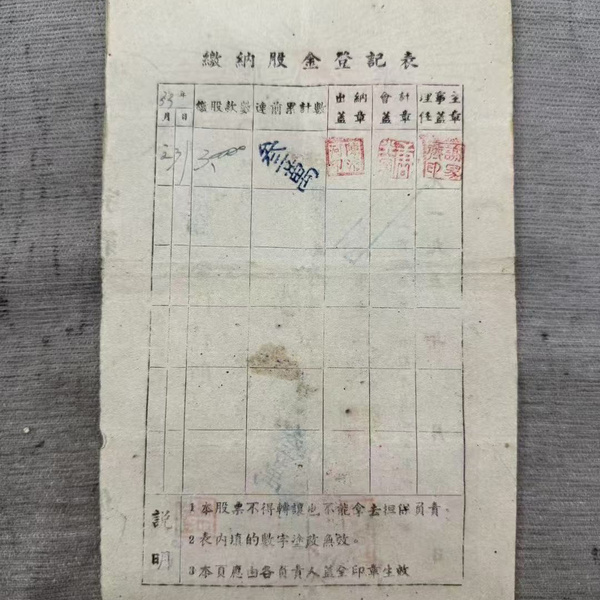 繳納股金登記表
年 月 日
繳股款数
連前累計數
出納蓋章
會計蓋章
理事主任蓋章
叁萬
説明
1 本股票不得轉讓也不能拿去担保負責。
2 表内填的數字塗改無效。
3 本頁應由各負責人蓋全印章生效